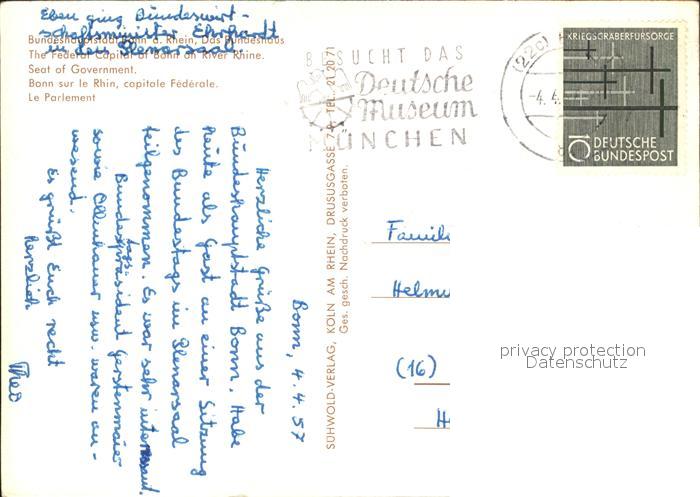 Eben ging Bundeswirt-
schaftsminister Ehrhardt
in den Plenarsaal.
Bundeshauptstadt Bonn a. Rhein, Das Bundeshaus
The Federal Capital of Bonn on River Rhine.
Seat of Government.
Bonn sur le Rhin, capitale Fédérale.
Le Parlement
Bonn, 4.4.57
Herzliche Grüße aus der
Bundeshauptstadt Bonn. Habe
heute als Gast an einer Sitzung
des Bundestags im Plenarsaal
teilgenommen. Es war sehr interessant.
Bundestags-
präsident Gerstenmaier
sowie Ollenhauer usw. waren an-
wesend.
Es grüßt Euch recht
herzlich
Theo
SÜHWOLD-VERLAG, KÖLN AM RHEIN, DRUSUSGASSE 7-11, TEL. 21 20 71
Ges. gesch. Nachdruck verboten.
BESUCHT DAS
Deutsche
Museum
MÜNCHEN
(22c)
-4.4.
KRIEGSGRÄBERFÜRSORGE
10 DEUTSCHE
BUNDESPOST
Famili
Helmu
(16)
H
privacy protection
Datenschutz